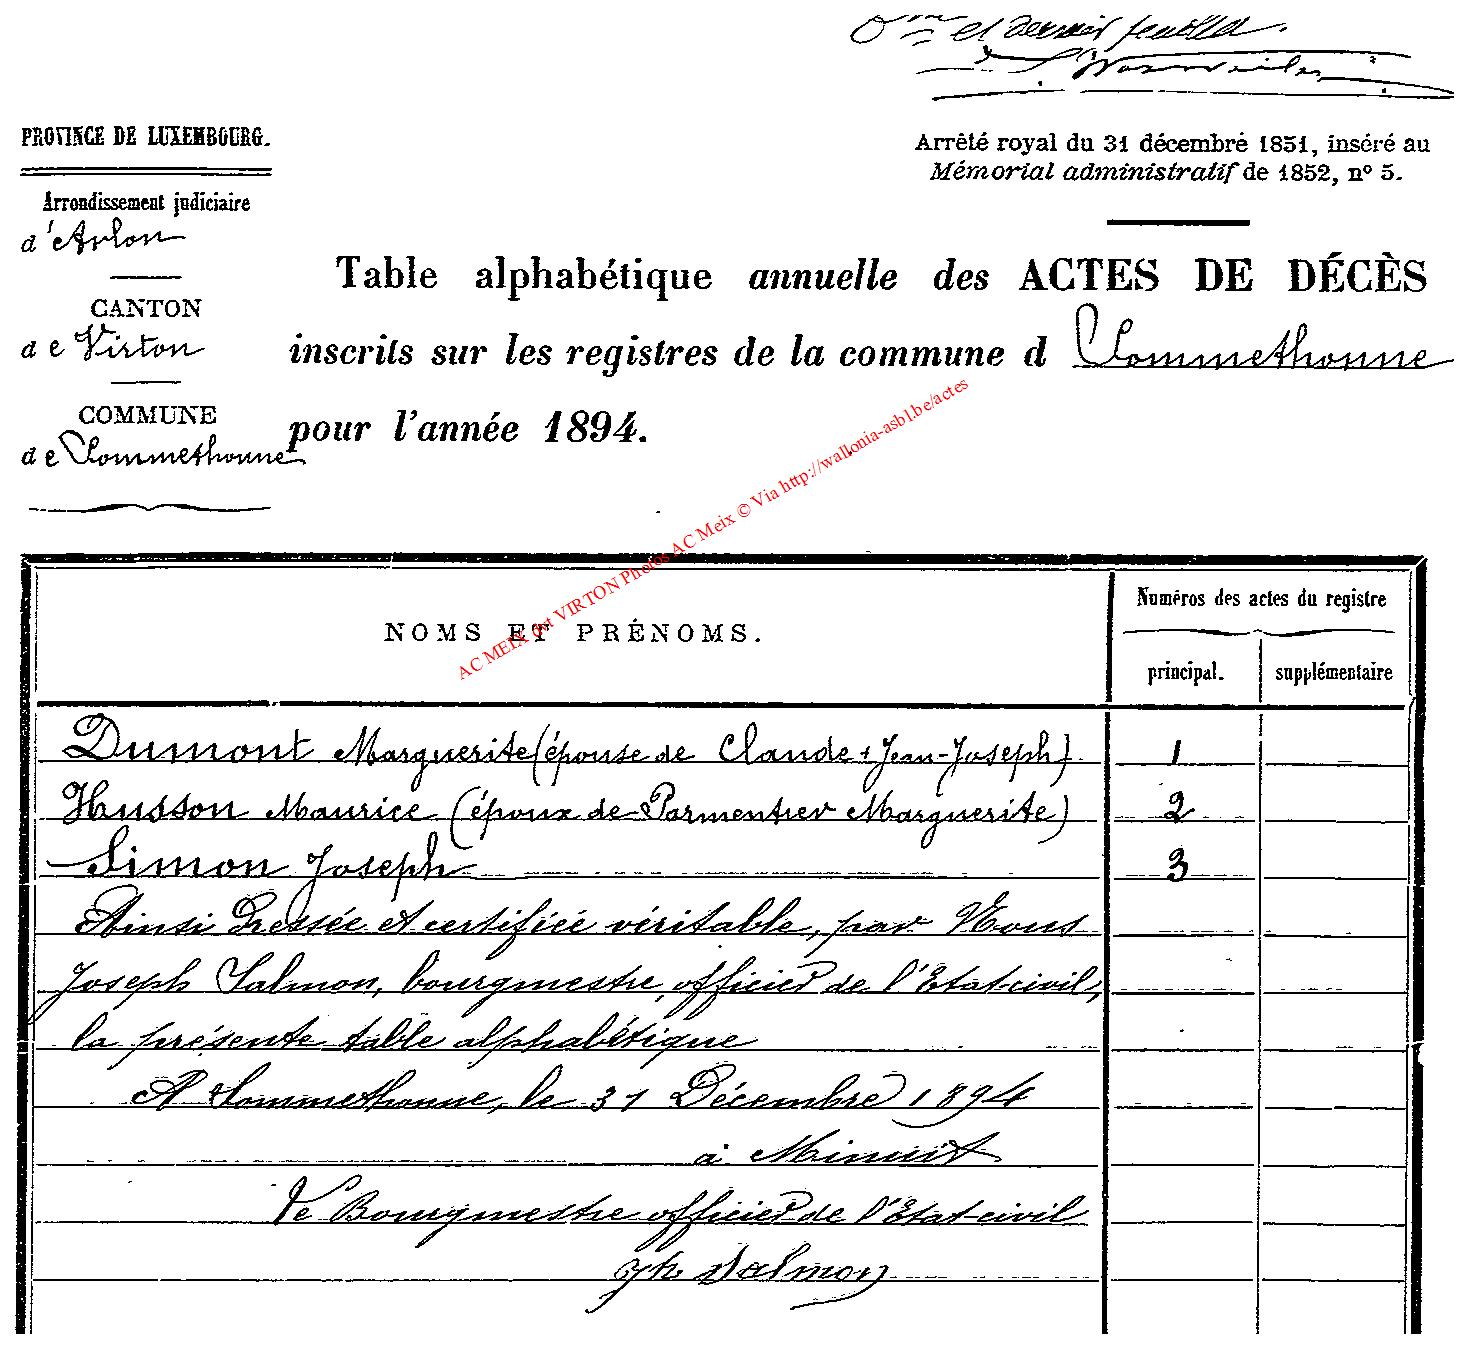 et dernier feuillet
PROVINCE DE LUXEMBOURG.
Arrondissement judiciaire
d'Arlon
CANTON
de Virton
COMMUNE
de Sommethonne
Arrêté royal du 31 décembre 1851, inséré au
Mémorial administratif de 1852, n° 5.
Table alphabétique annuelle des ACTES DE DÉCÈS
inscrits sur les registres de la commune d Sommethonne
pour l'année 1894.
AC MEIX dvt VIRTON Photos AC Meix © Via http://wallonia-asbl.be/actes
NOMS ET PRÉNOMS.
Numéros des actes du registre
principal.
supplémentaire
Dumont Marguerite (épouse de Claude Jean-Joseph) 1
Husson Maurice (époux de Parmentier Marguerite) 2
Simon Joseph 3
Ainsi Dressée et certifiée véritable, par Nous
Joseph Salmon, bourgmestre, officier de l'Etat-civil,
la présente table alphabétique
A Sommethonne, le 31 Décembre 1894
à Minuit
Le Bourgmestre officier de l'Etat-civil
Jh Salmon